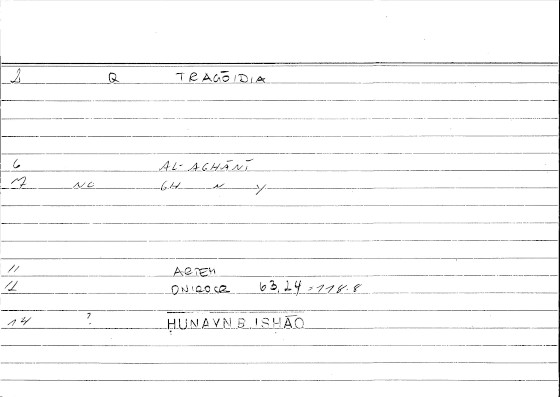 2 Q TRAGŌIDIA
6 AL-AGHĀNĪ
7 NO GH N Y
11 ARTEM
12 ONIROCR 63,24 = 118.8
14 ? ḤUNAYN B ISḤĀQ